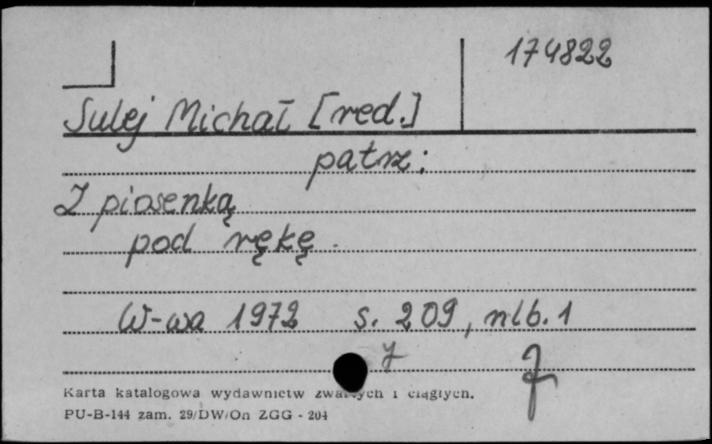 174822
Sulej Michał [red.]
patrz:
Z piosenką
pod rękę.
W-wa 1972 s. 209, nlb. 1
Karta katalogowa wydawnictw zwartych i ciągłych.
PU-B-144 zam. 29/DW/On ZGG - 204